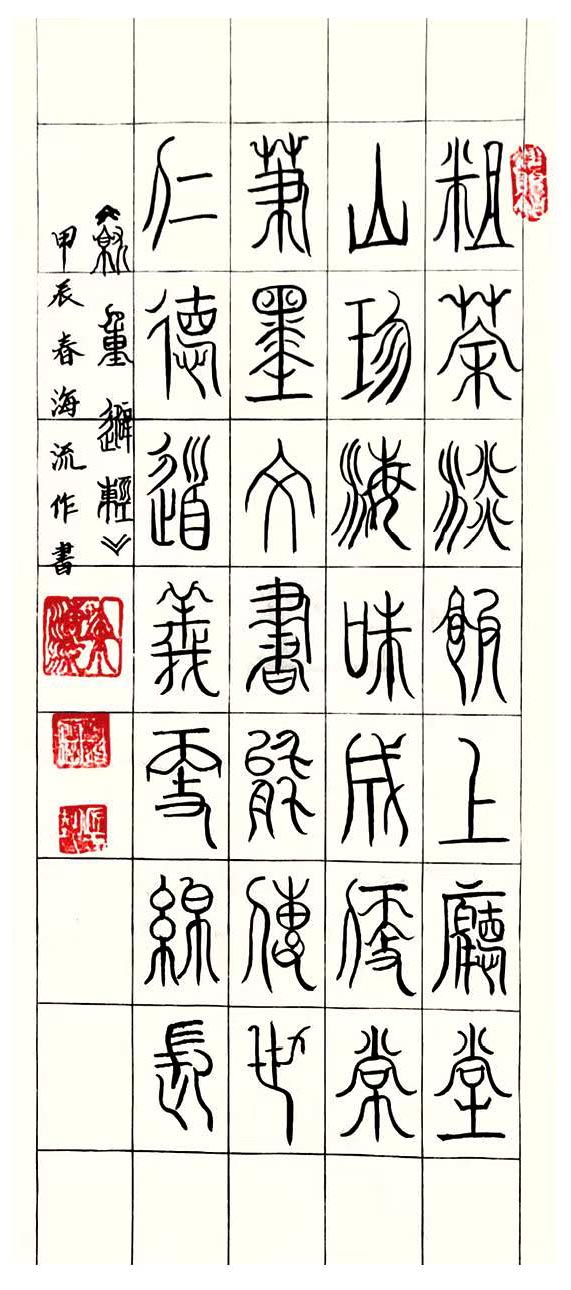 粗茶淡飯上廳堂
山珍海味成便常
筆墨文書能傳世
仁德道義更綿長
重避輕》
甲辰春海流作書